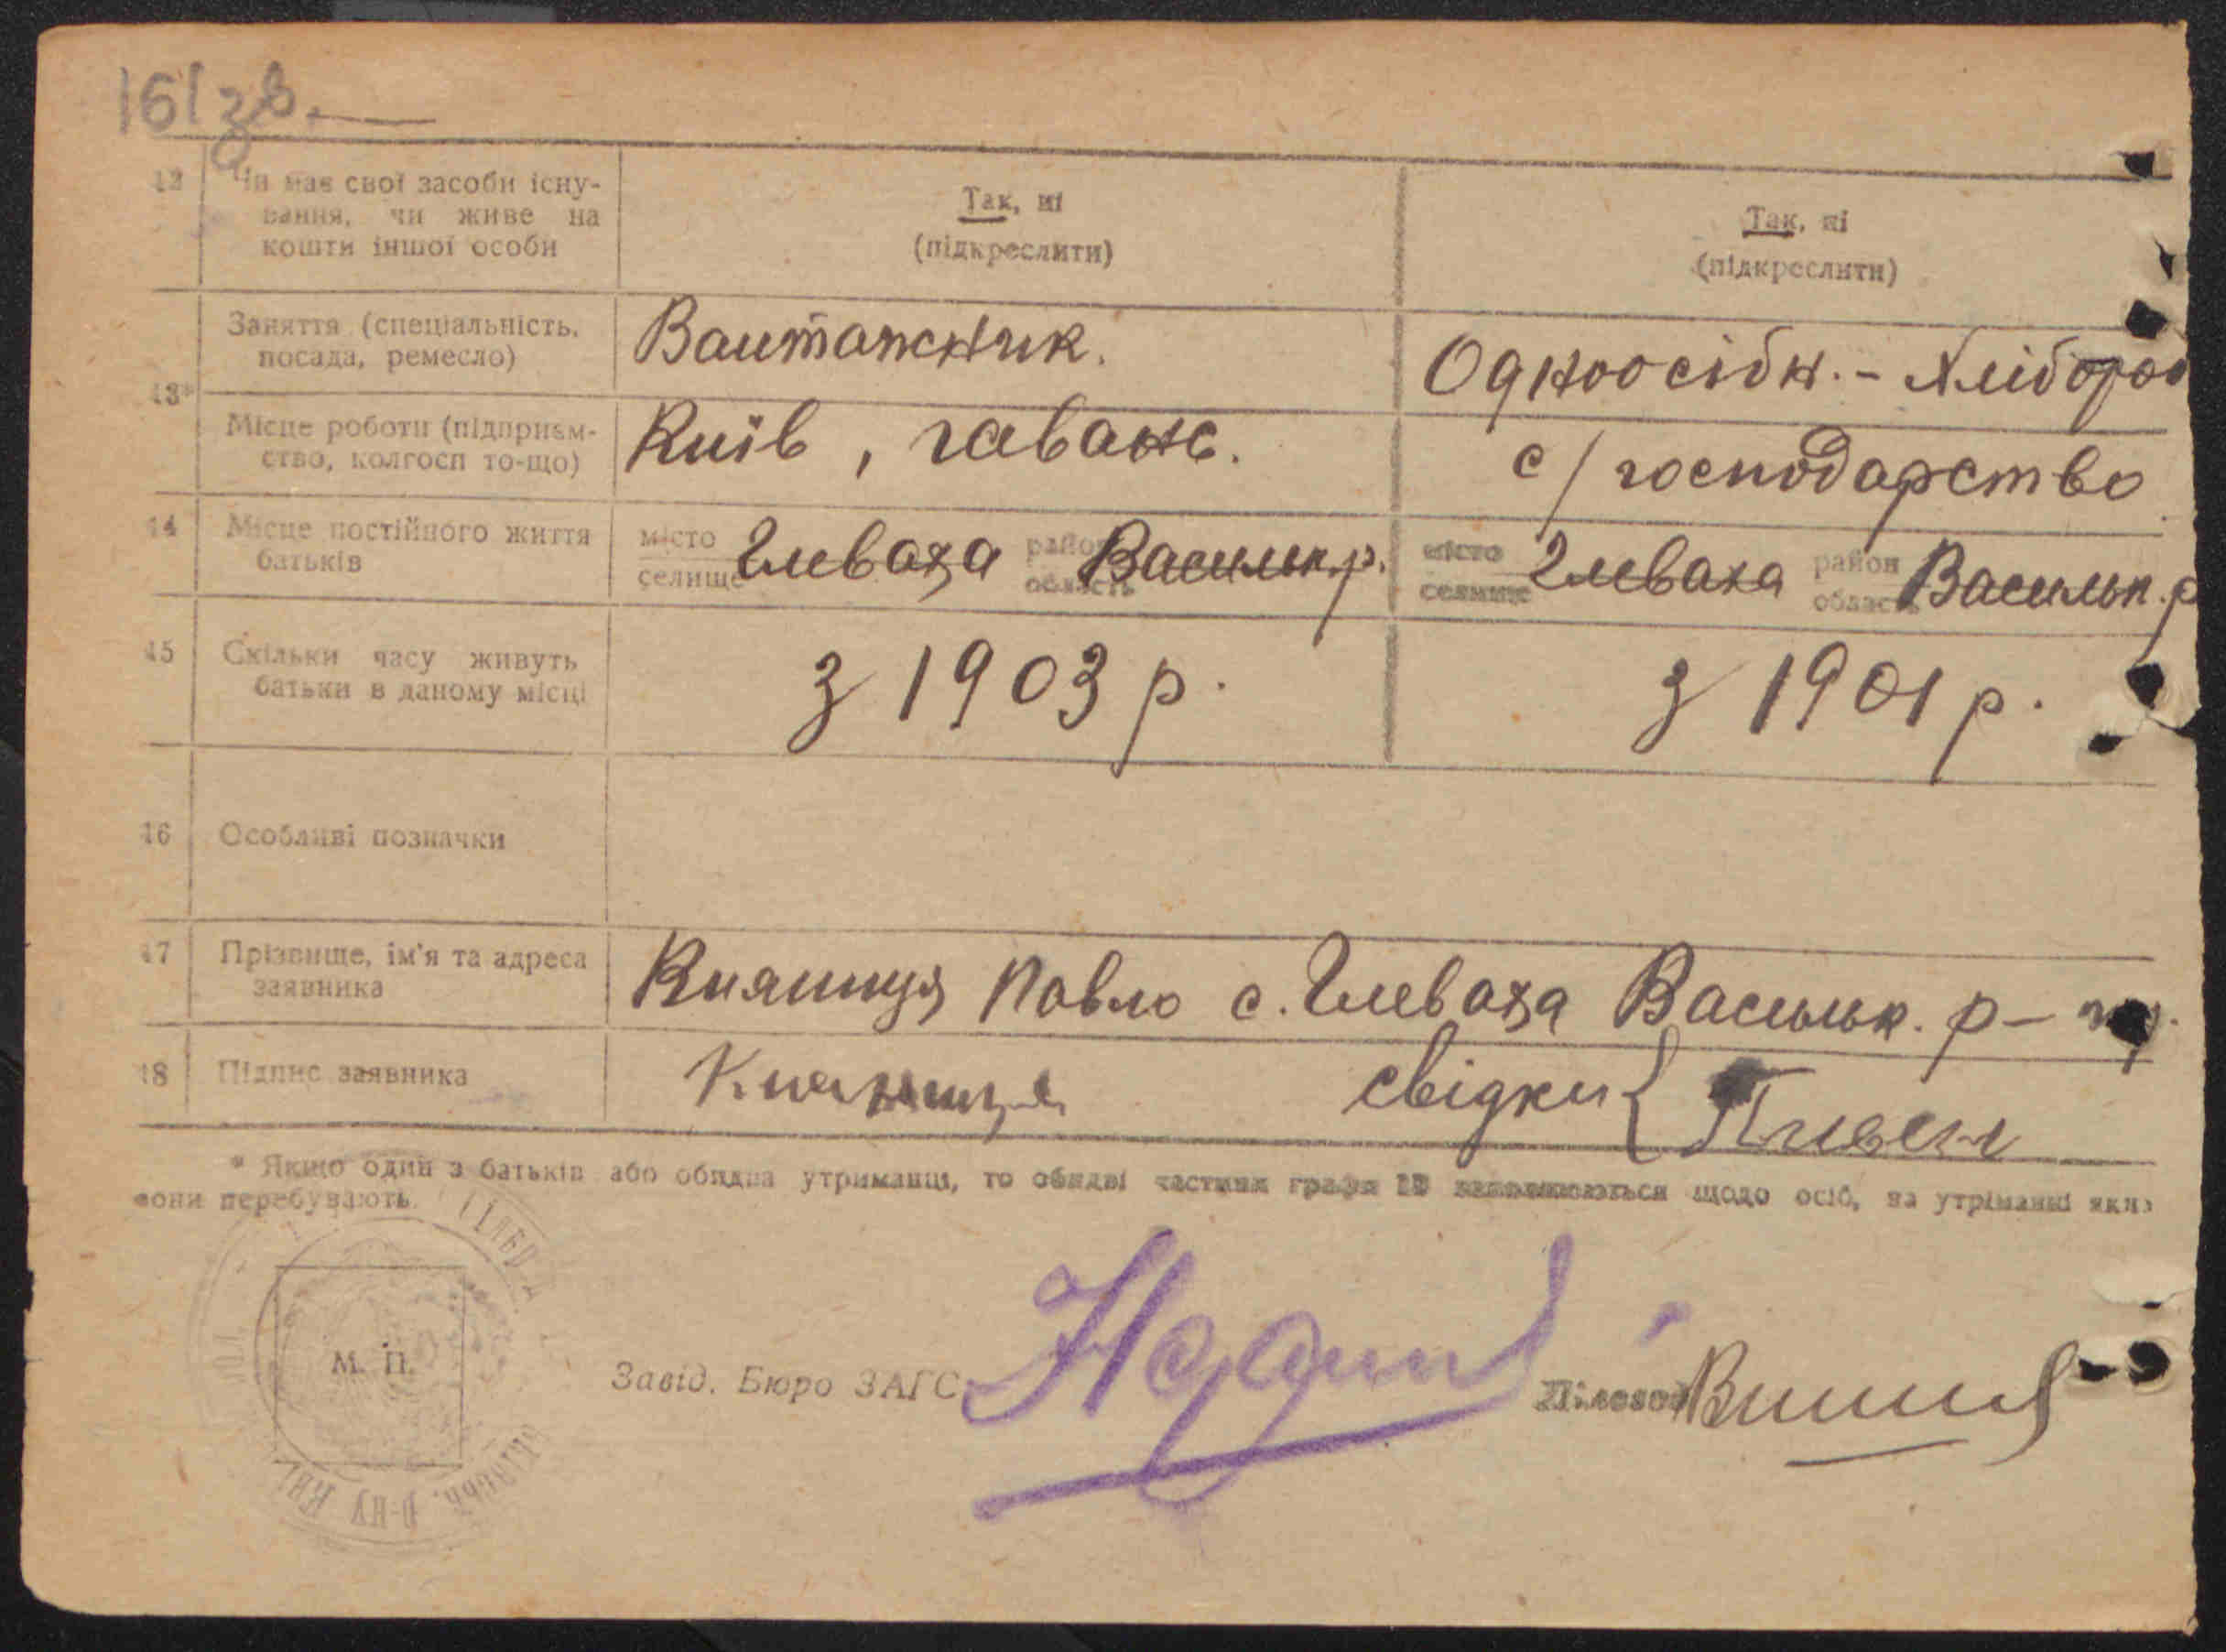 161 зв.
12 Чи має свої засоби існу-
вання, чи живе на
кошти іншої особи
Так, ні
(підкреслити)
Так, ні
(підкреслити)
13*
Заняття (спеціальність,
посада, ремесло)
Вантажник.
Одноосібн. - Хлібороб
Місце роботи (підприєм-
ство, колгосп то-що)
Київ, гавань.
с/господарство
14 Місце постійного життя
батьків
місто
селище
Глеваха
район
область
Васильк. р.
місто
селище
Глеваха
район
область
Васильк. р
15 Скільки часу живуть
батьки в даному місці
з 1903 р.
з 1901 р.
16 Особливі позначки
17 Прізвище, ім'я та адреса
заявника
Княшиця Павло с. Глеваха Васильк. р-
18 Підпис заявника
свідки {
* Якщо один з батьків або обидва утриманці, то обидві частини графи 13 заповнюються щодо осіб, на утриманні яких
вони перебувають.
М. П.
Р-НУ
Завід. Бюро ЗАГС
Діловод